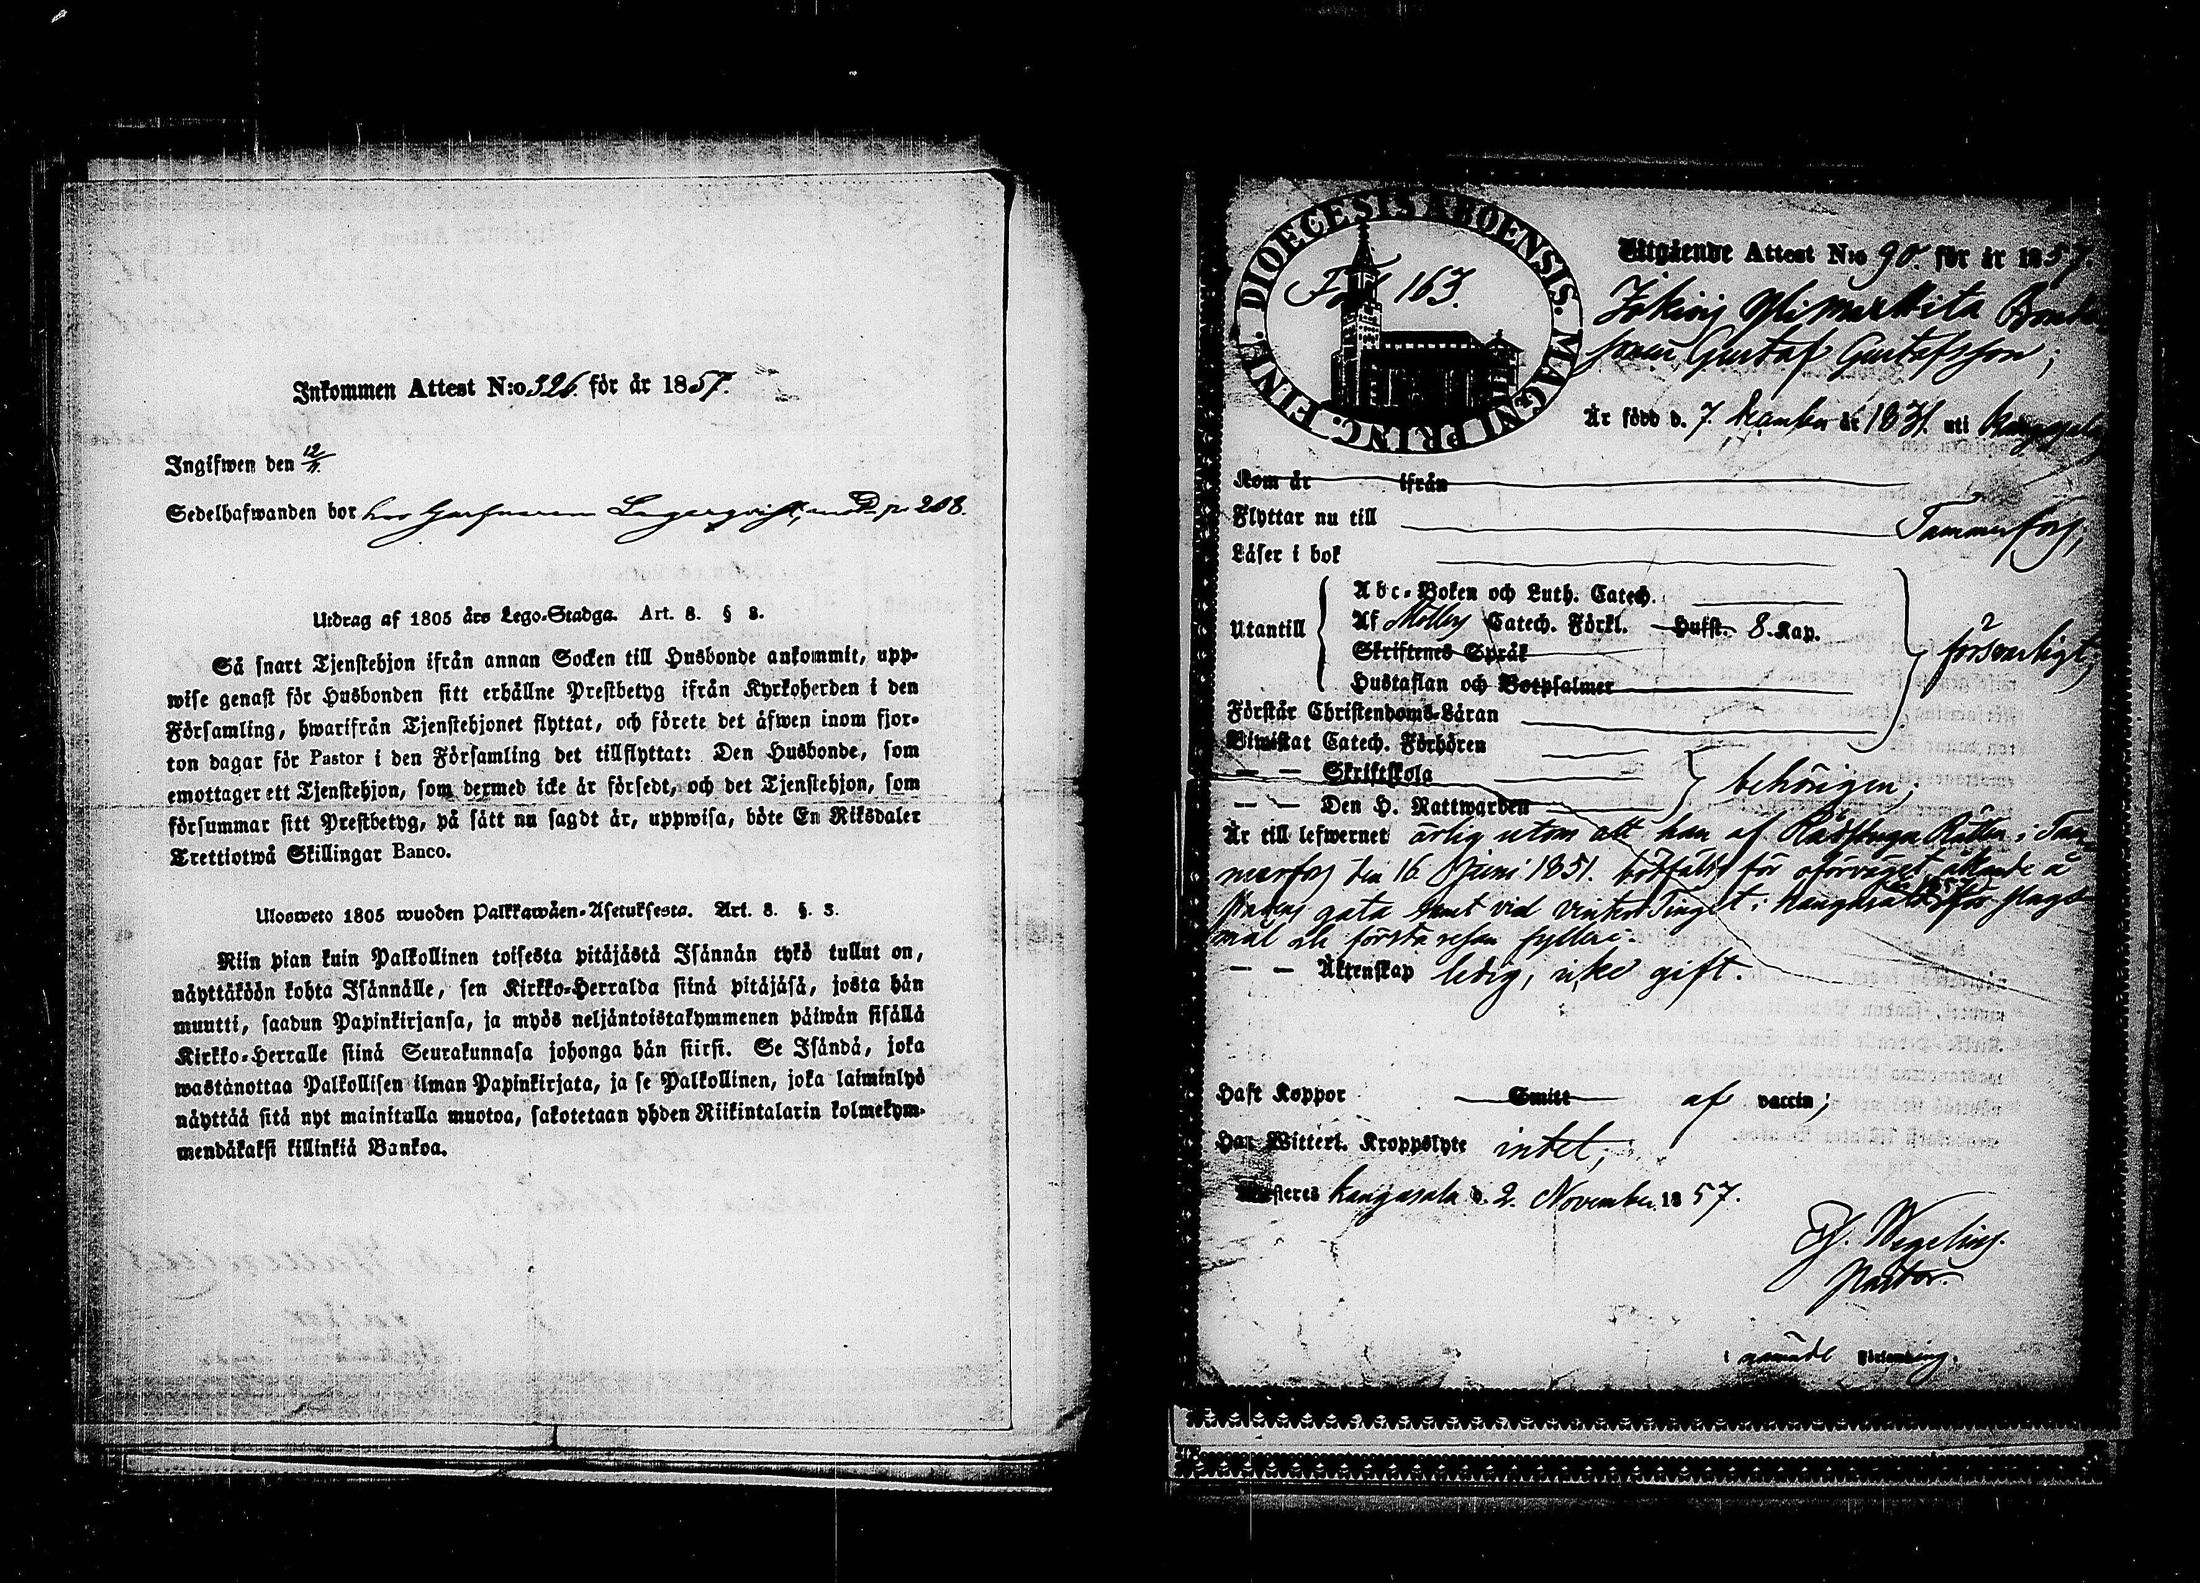 Inkommen Attest N:o 326. för år 1857.
Ingifwen den 12/11.
Sedelhafwanden bor hos Garfvaren Lagerqvist, p. 208.
Utdrag af 1805 års Lego-Stadga. Art. 8. § 3.
Så snart Tjenstehjon ifrån annan Socken till Husbonde ankommit, upp-
wise genast för Husbonden sitt erhållne Prestbetyg ifrån Kyrkoherden i den
Församling, hwarifrån Tjenstehjonet flyttat, och förete det äfwen inom fjor-
ton dagar för Pastor i den Församling det tillflyttat: Den Husbonde, som
emottager ett Tjenstehjon, som dermed icke är försedt, och det Tjenstehjon, som
försummar sitt Prestbetyg, på sätt nu sagdt är, uppwisa, böte En Riksdaler
Trettiotwå Skillingar Banco.
Ulosweto 1805 wuoden Palkkawäen-Asetuksesta. Art. 8. §. 3.
Niin pian kuin Palkollinen toisesta pitäjästä Isännän tykö tullut on,
näyttäköön kohta Isännälle, sen Kirkko-Herralda siinä pitäjäsä, josta hän
muutti, saadun Papinkirjansa, ja myös neljäntoistakymmenen päiwän sisällä
Kirkko-Herralle siinä Seurakunnasa johonga hän siirsi. Se Isändä, joka
wastanottaa Palkollisen ilman Papinkirjata, ja se Palkollinen, joka laiminlyö
näyttää sitä nyt mainitulla muotoa, sakotetaan yhden Riikintalarin kolmekym-
mendäkaksi killinkiä Bankoa.
DIOECESIS ABOENSIS. MAGNI PRINC. FINL.
Fol. 163.
Utgående Attest N:o 90. för år 1857.
Gustaf Gustafsson;
Är född d. 7. år 1831. uti Kangasala
Kom år ifrån
Flyttar nu till Tammerfors;
Läser i bok
Utantill
Abc-Boken och Luth. Catech.
Af Möllers Catech. Förkl. Hufst. 8. Kap.
Skriftenes Språk
Hustaflan och Botpsalmer
försvarligt;
Förstår Christendoms-Läran
Biwistat Catech. Förhören
— — Skriftskola
— — Den H. Nattwarden
behörigen;
Är till lefwernet ärlig utom att han af Rådstugu Rätten i Tam-
merfors den 16. Juni 1851. bötfälld för åkande å
gata samt vid vinter Tinget i Kangasala för slags-
mål och första resan fylleri.
— — Äktenskap ledig, icke gift.
Haft Koppor Smitt af vaccin;
Har Witterl. Kroppslyte intet;
Attesteres Kangasala d. 2. November 1857.
Wegelius.
Pastor.
i nämnde Församling.